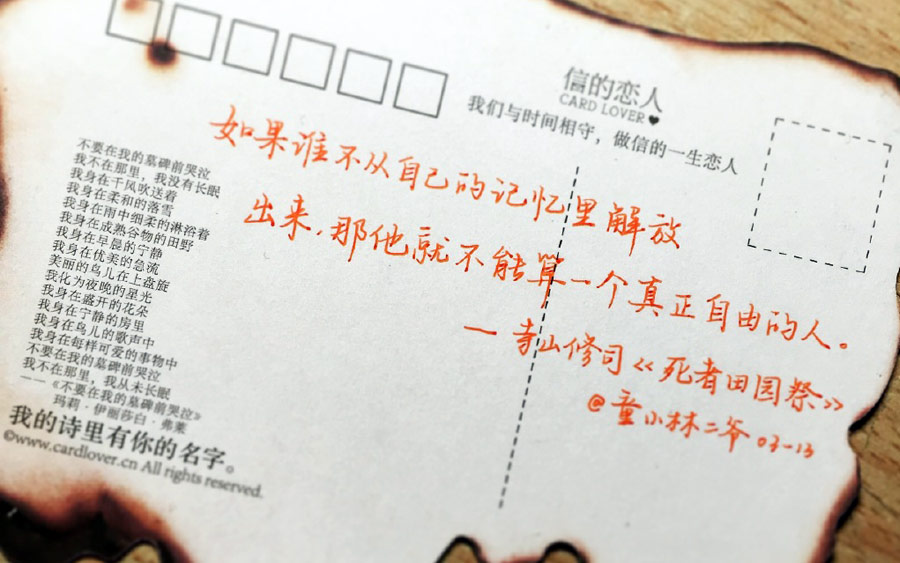 信的恋人
CARD LOVER
我们与时间相守，做信的一生恋人
如果谁不从自己的记忆里解放
出来，那他就不能算一个真正自由的人。
一寺山修司《死者田园祭》
@童小林二爷 03-13
不要在我的墓碑前哭泣
我不在那里，我没有长眠
我身在千风吹送着
我身在柔和的落雪
我身在雨中细柔的淋浴着
我身在成熟谷物的田野
我身在早晨的宁静
我身在优美的急流
美丽的鸟儿在上盘旋
我化为夜晚的星光
我身在盛开的花朵
我身在宁静的房里
我身在鸟儿的歌声中
我身在每样可爱的事物中
不要在我的墓碑前哭泣
我不在那里，我从未长眠
——《不要在我的墓碑前哭泣》
玛莉·伊丽莎白·弗莱
我的诗里有你的名字。
©www.cardlover.cn All rights reserved.